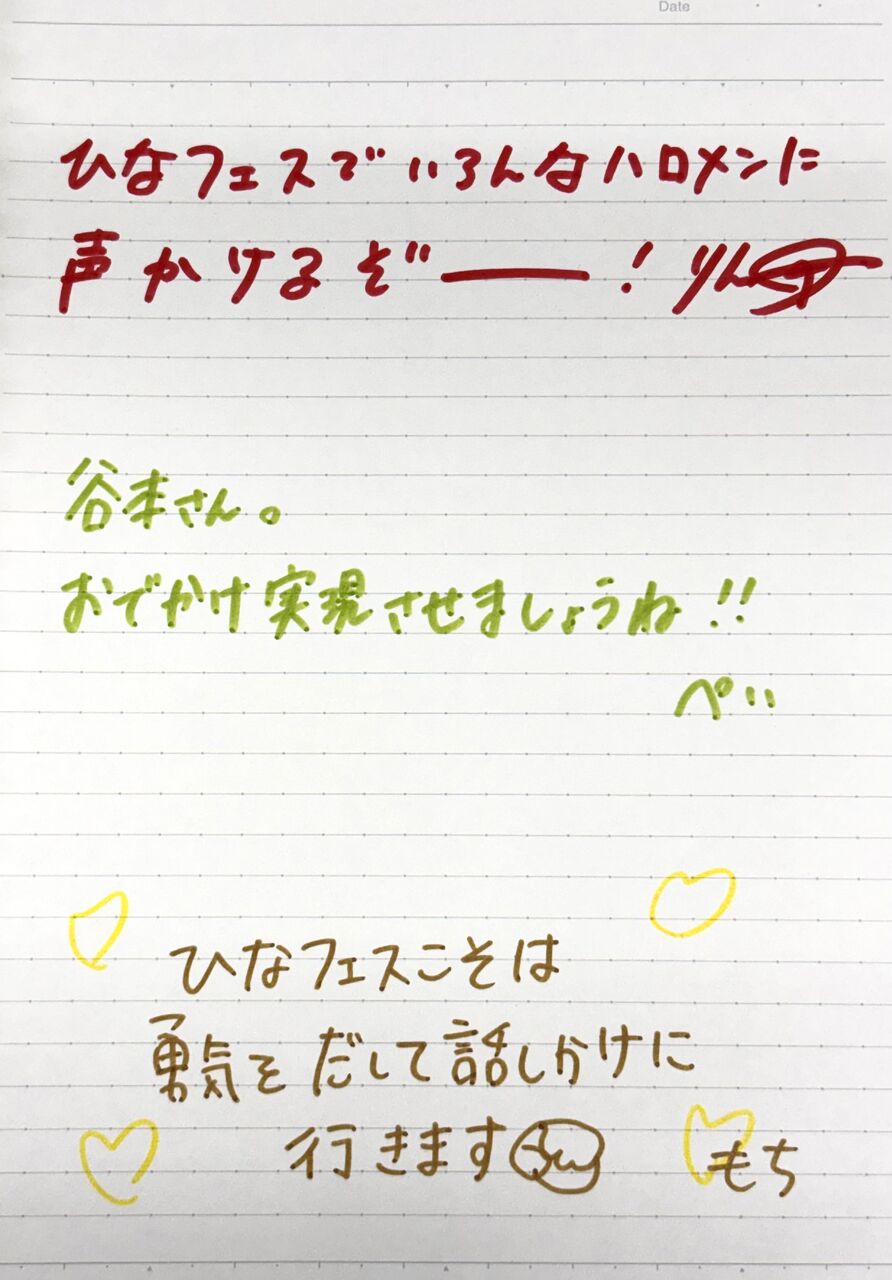 Date
ひなフェスでいろんなハロメンに
声かけるぞー! りん
谷本さん。
おでかけ実現させましょうね!!
ぺい
ひなフェスこそは
勇気をだして話しかけに
行きます
もち